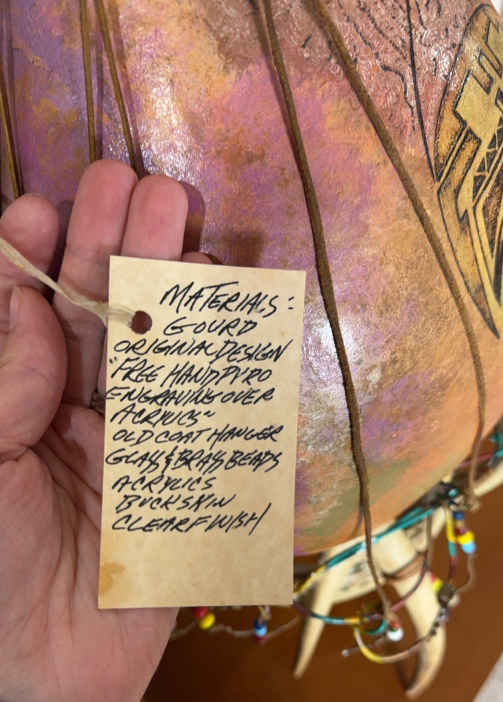 MATERIALS:
GOURD
ORIGINAL DESIGN
"FREE HAND PYRO
ENGRAVING OVER
ACRYLICS"
OLD COAT HANGER
GLASS & BRASS BEADS
ACRYLICS
BUCKSKIN
CLEAR FINISH